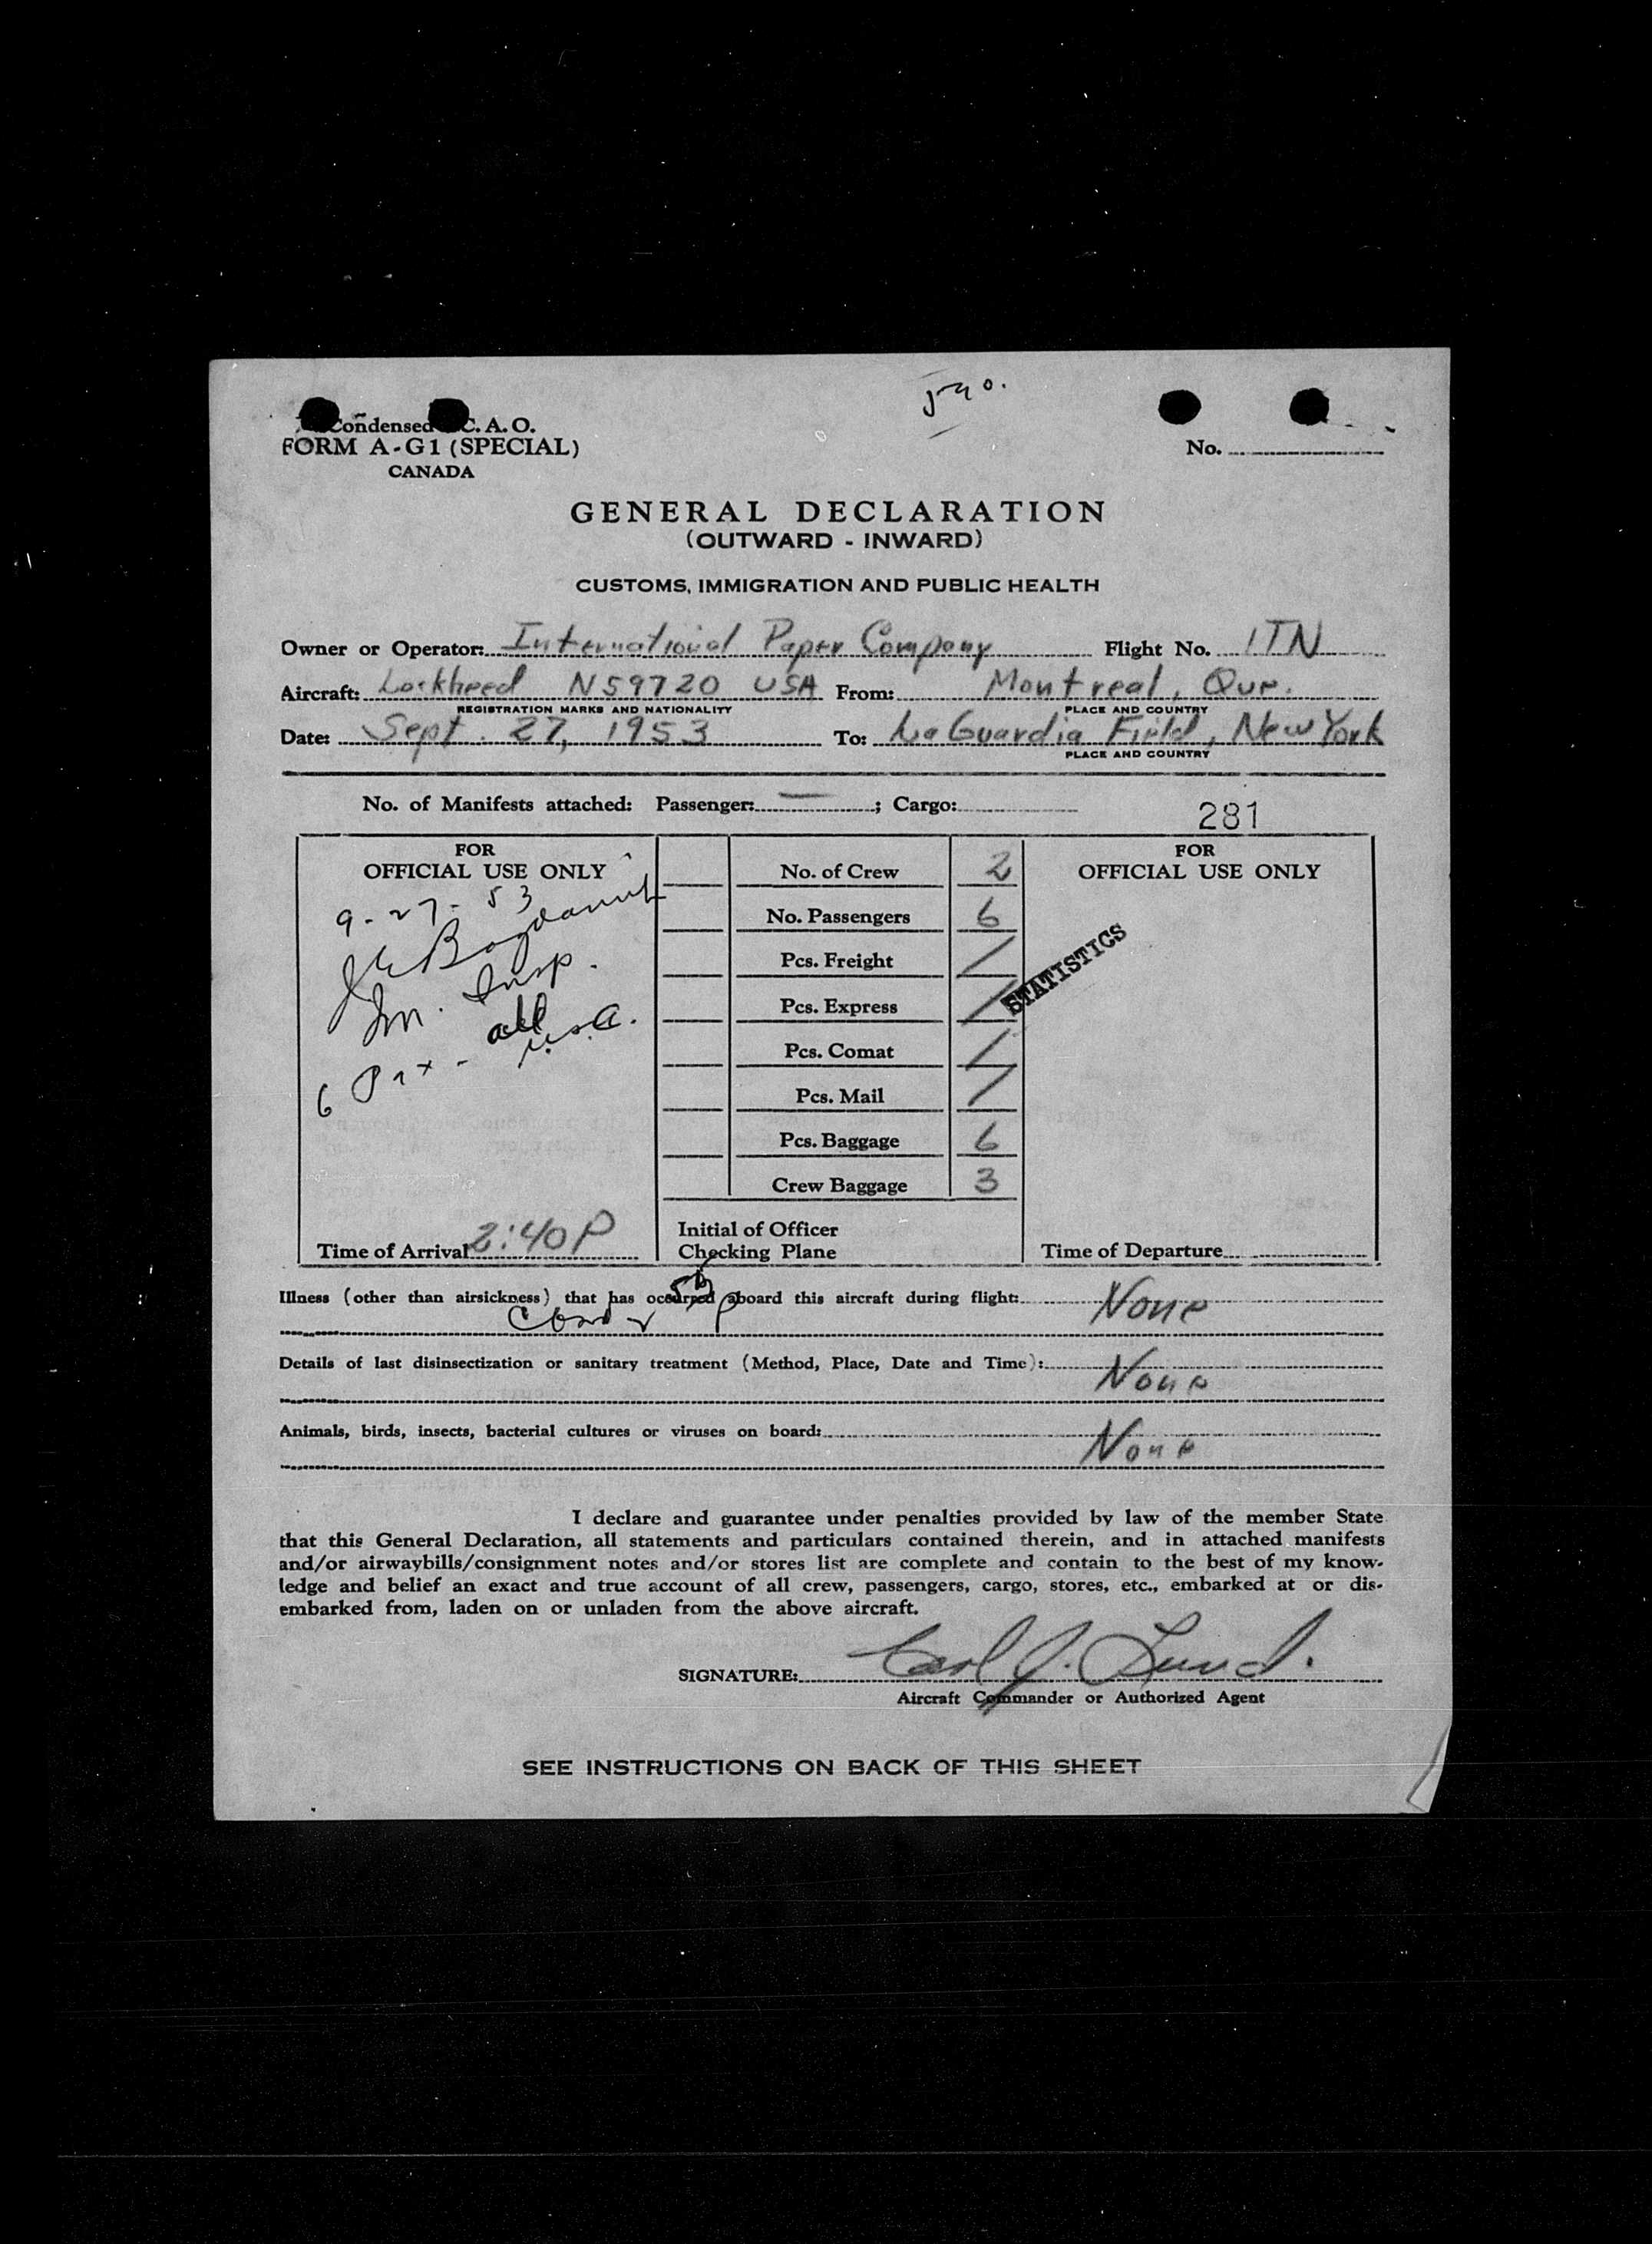 Condensed C. A. O.
FORM A-G1 (SPECIAL)
CANADA
No.
GENERAL DECLARATION
(OUTWARD - INWARD)
CUSTOMS, IMMIGRATION AND PUBLIC HEALTH
Owner or Operator: International Paper Company Flight No. ITN
Aircraft: Lockheed N59720 USA From: Montreal, Que.
REGISTRATION MARKS AND NATIONALITY PLACE AND COUNTRY
Date: Sept. 27, 1953 To: LaGuardia Field, New York
PLACE AND COUNTRY
No. of Manifests attached: Passenger: — ; Cargo:
281
FOR
OFFICIAL USE ONLY
9-27-53
Im. Insp.
6 Pax - all
U.S.C.
Time of Arrival 2:40 P
No. of Crew 2
No. Passengers 6
Pcs. Freight /
Pcs. Express /
Pcs. Comat /
Pcs. Mail /
Pcs. Baggage 6
Crew Baggage 3
Initial of Officer
Checking Plane
FOR
OFFICIAL USE ONLY
STATISTICS
Time of Departure
Illness (other than airsickness) that has occurred aboard this aircraft during flight: None
Details of last disinsectization or sanitary treatment (Method, Place, Date and Time): None
Animals, birds, insects, bacterial cultures or viruses on board: None
I declare and guarantee under penalties provided by law of the member State
that this General Declaration, all statements and particulars contained therein, and in attached manifests
and/or airwaybills/consignment notes and/or stores list are complete and contain to the best of my know-
ledge and belief an exact and true account of all crew, passengers, cargo, stores, etc., embarked at or dis-
embarked from, laden on or unladen from the above aircraft.
SIGNATURE: Carl J. Lund.
Aircraft Commander or Authorized Agent
SEE INSTRUCTIONS ON BACK OF THIS SHEET